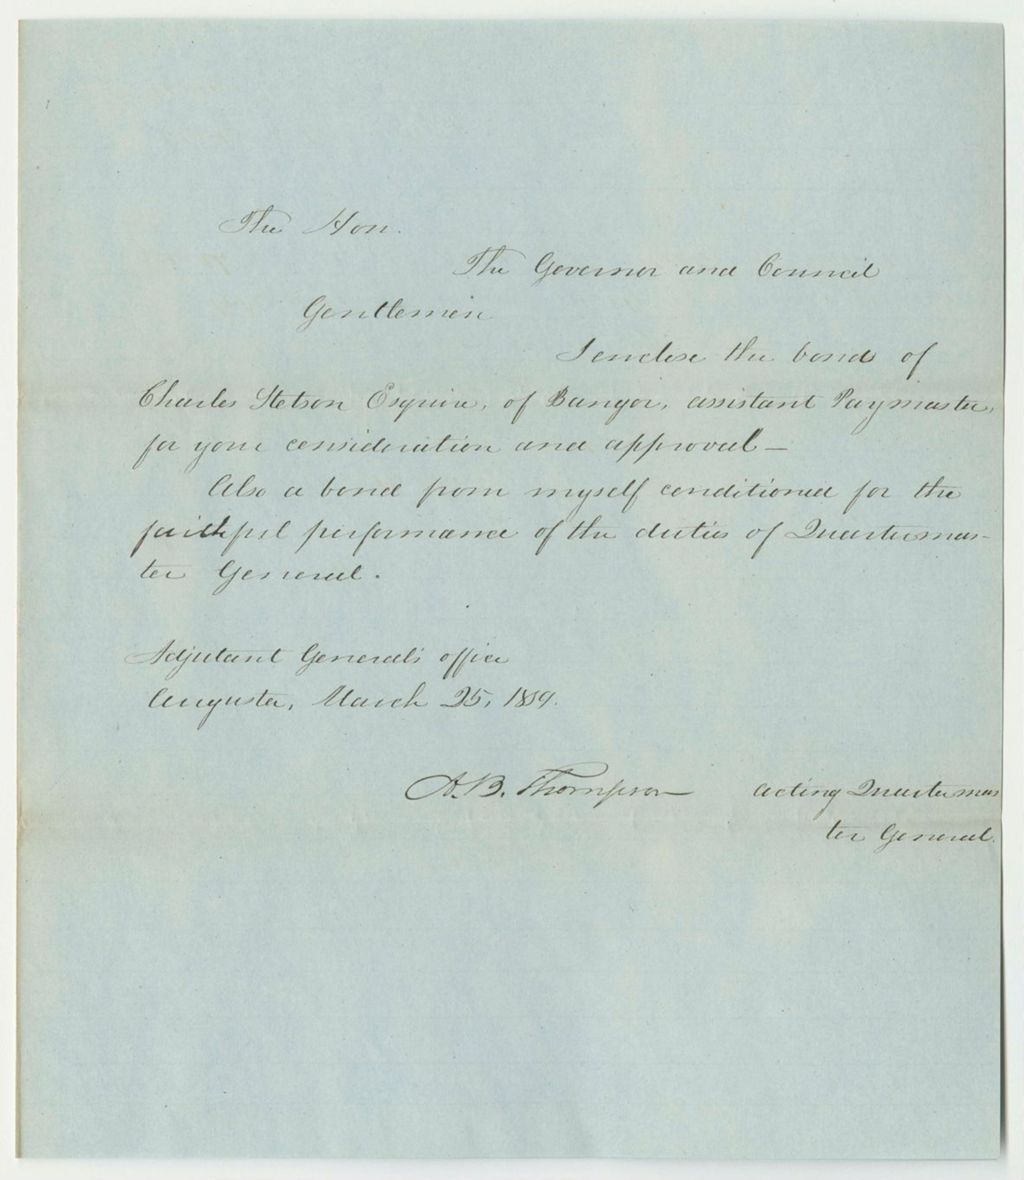 The Hon.
The Governor and Council
Gentlemen
I enclose the bond of
Charles Stetson Esquire, of Bangor, assistant Paymaster,
for your consideration and approval—
Also a bond from myself conditioned for the
faithful performance of the duties of Quartermas-
ter General.
Adjutant General's office
Augusta, March 25, 1839.
A. B. Thompson acting Quartermas
ter General.